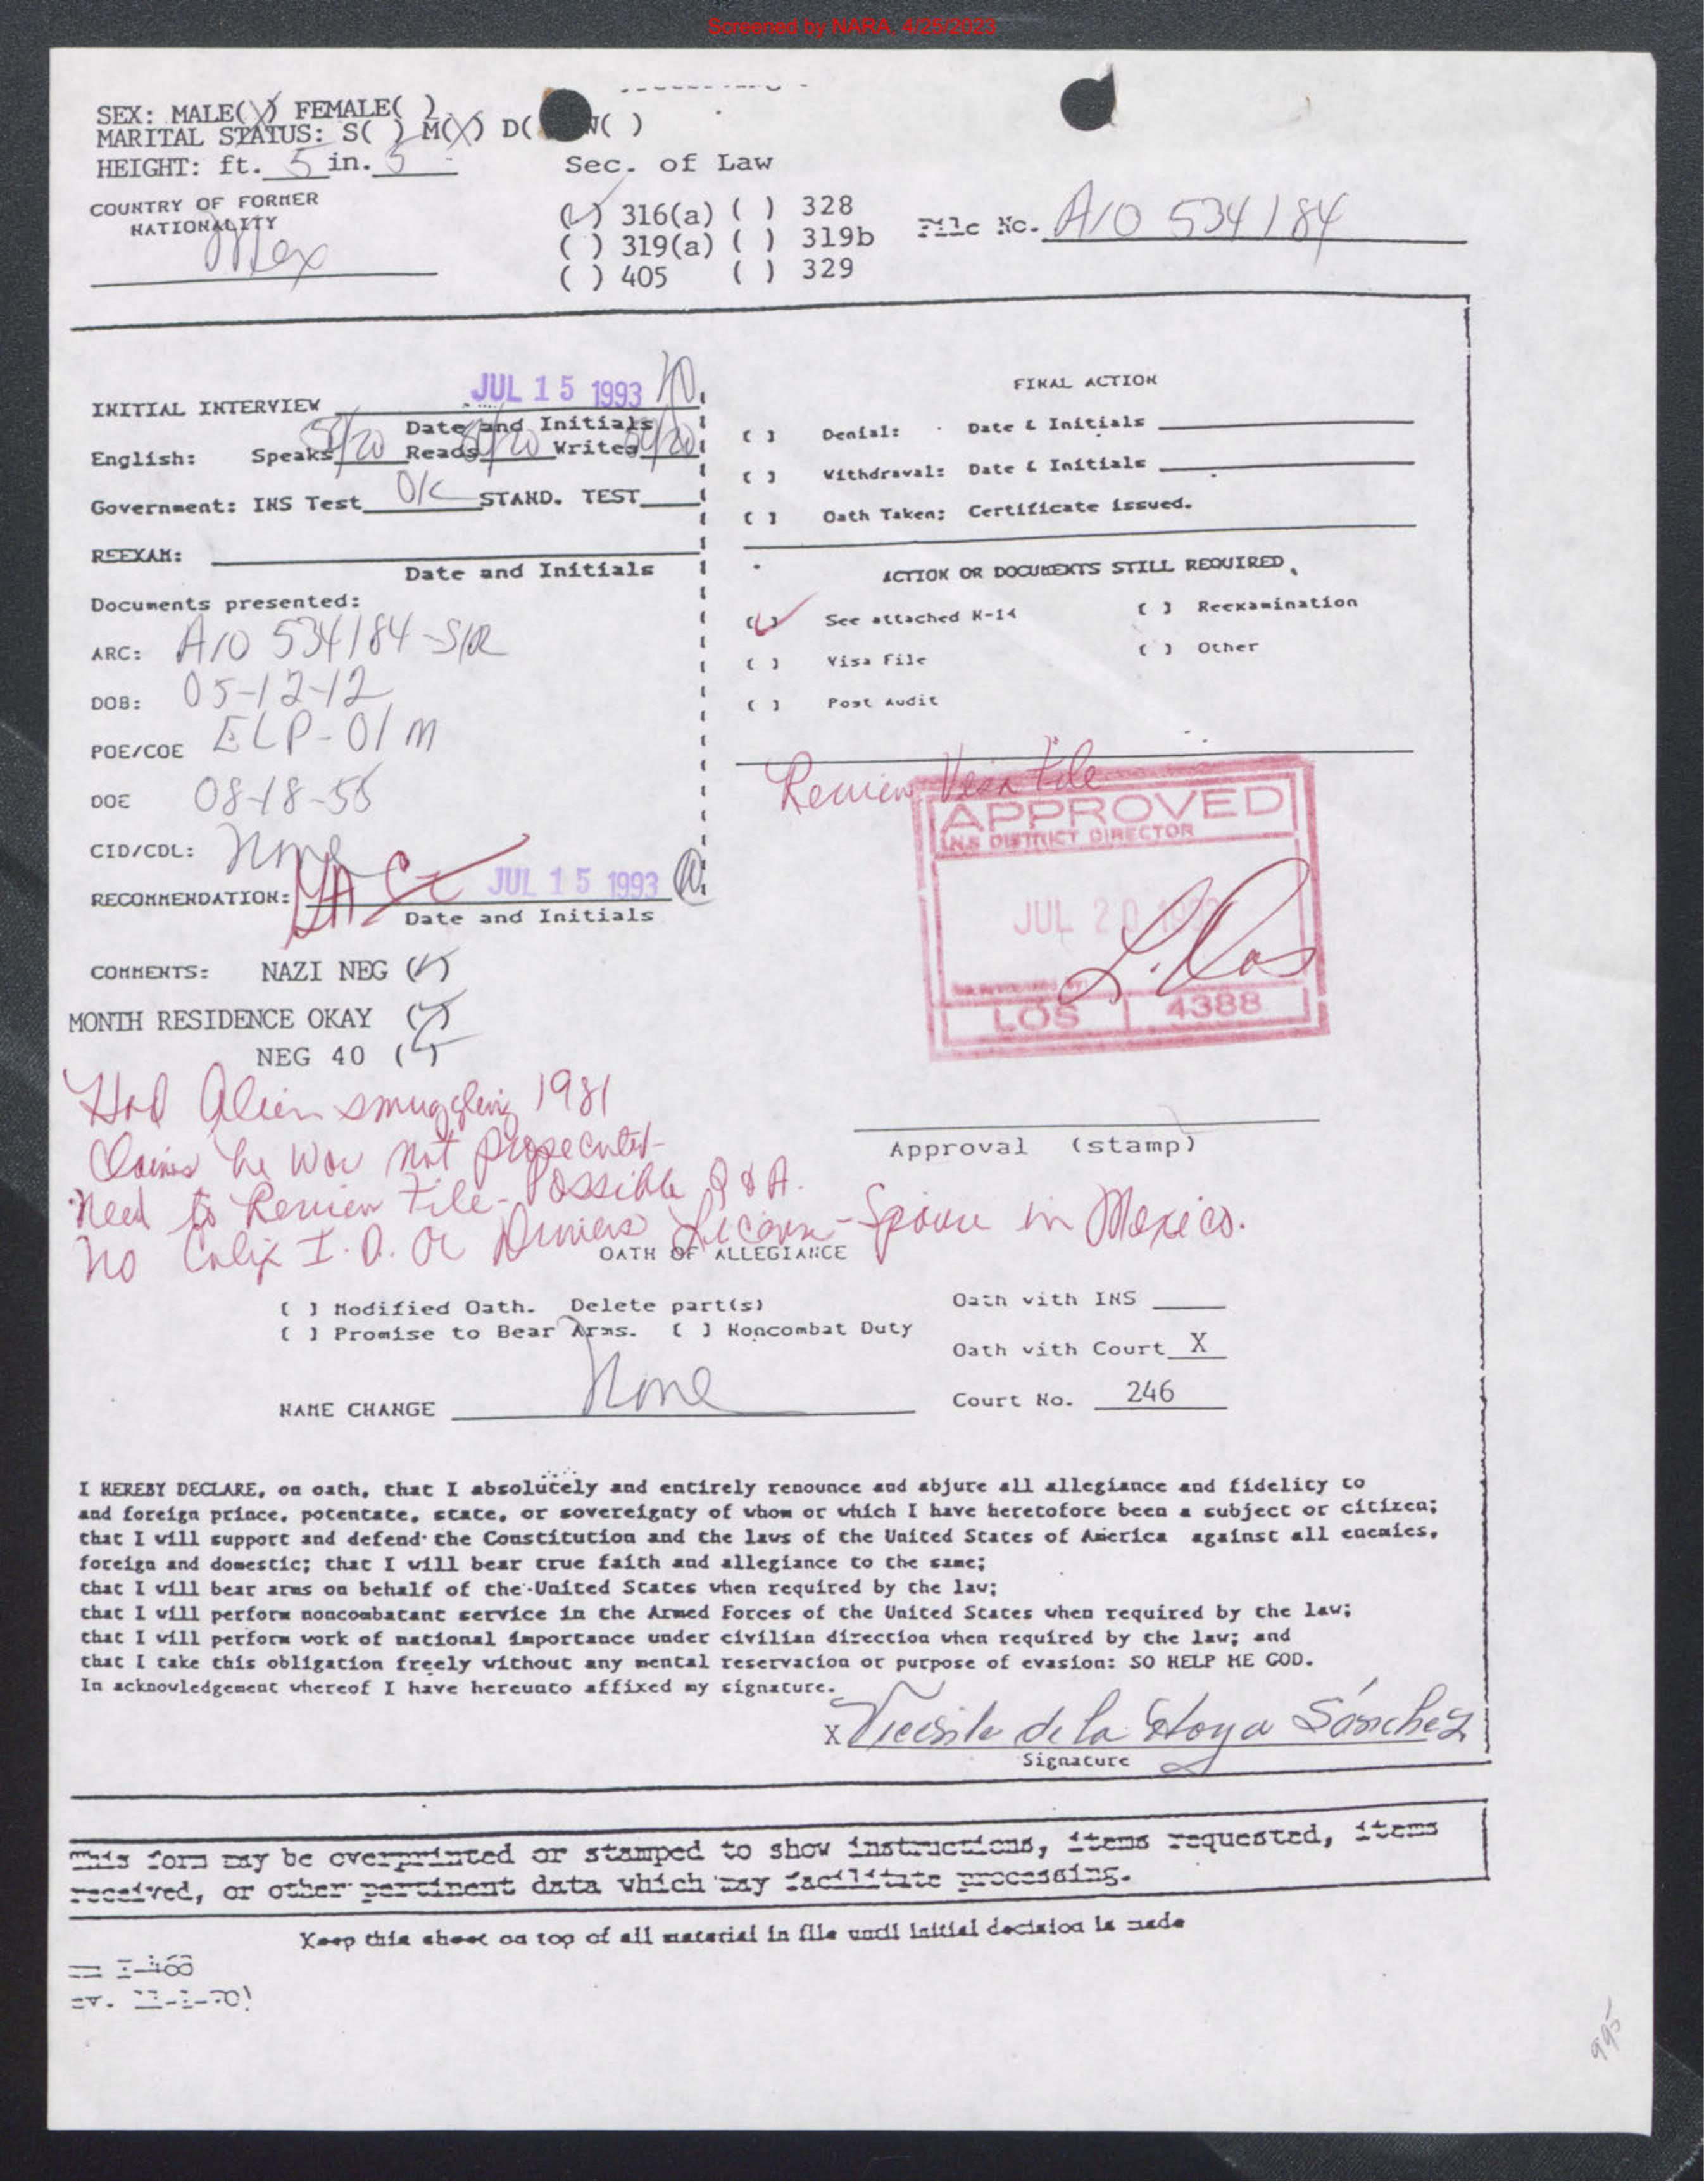 Screened by NARA, 4/25/2023
SEX: MALE(X) FEMALE( )
MARITAL STATUS: S( ) M(X) D( W( )
HEIGHT: ft. 5 in. 5
Sec. of Law
COUNTRY OF FORMER
NATIONALITY
Mex
(✓) 316(a) ( ) 328
( ) 319(a) ( ) 319b
( ) 405 ( ) 329
File No. A10 534184
INITIAL INTERVIEW JUL 15 1993
Date and Initials
English: Speaks Reads Writes
Government: INS Test OK STAND. TEST
REEXAM:
Date and Initials
Documents presented:
ARC: A10 534184-S/R
DOB: 05-12-12
POE/COE ELP-01M
DOE 08-18-58
CID/CDL: None
RECOMMENDATION: JUL 15 1993
Date and Initials
COMMENTS: NAZI NEG (✓)
MONTH RESIDENCE OKAY (✓)
NEG 40 (✓)
FINAL ACTION
( ) Denial: Date & Initials
( ) Withdraval: Date & Initials
( ) Oath Taken; Certificate issued.
ACTION OR DOCUMENTS STILL REQUIRED
(✓) See attached N-14 ( ) Reexamination
( ) Visa File ( ) Other
( ) Post Audit
Review Visa File
APPROVED
INS DISTRICT DIRECTOR
JUL 20 1993
LOS 4388
Approval (stamp)
Had Alien smuggling 1981
Claims he was not prosecuted-
Need to Review File- Possible Q & A.
No Calif I.D. or Drivers License - Spouse in Mexico.
OATH OF ALLEGIANCE
( ) Modified Oath. Delete part(s)
( ) Promise to Bear Arms. ( ) Noncombat Duty
Oath with INS
Oath with Court X
NAME CHANGE None
Court No. 246
I HEREBY DECLARE, on oath, that I absolutely and entirely renounce and abjure all allegiance and fidelity to
and foreign prince, potentate, state, or sovereignty of whom or which I have heretofore been a subject or citizen;
that I will support and defend the Constitution and the laws of the United States of America against all enemies,
foreign and domestic; that I will bear true faith and allegiance to the same;
that I will bear arms on behalf of the United States when required by the law;
that I will perform noncombatant service in the Armed Forces of the United States when required by the law;
that I will perform work of national importance under civilian direction when required by the law; and
that I take this obligation freely without any mental reservation or purpose of evasion: SO HELP ME GOD.
In acknowledgement whereof I have hereunto affixed my signature.
X Vicente de la Hoya Sánchez
Signature
This form may be overprinted or stamped to show instructions, items requested, items
received, or other pertinent data which may facilitate processing.
Keep this sheet on top of all material in file until initial decision is made
995